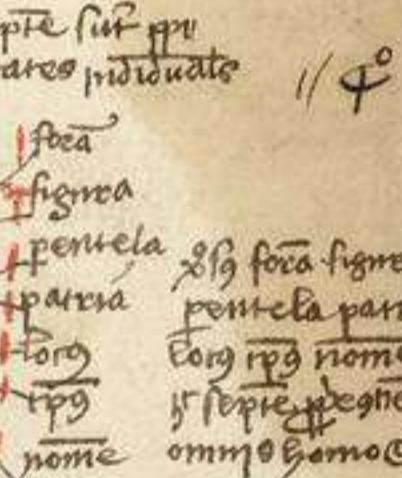 ptē sūt ppͥ
ates īdiuidual̄s
// qͦ
forā
figura
ꝑentela
patria
locꝰ
tp̄ꝰ
nomē
v̄sꝰ forā figur
ꝑentela patr
locꝰ tp̄ꝰ nomē
septē
omnis homo